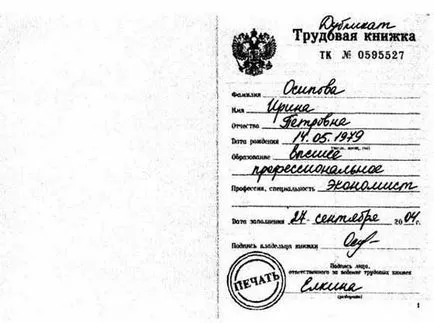 Дубликат
Трудовая книжка
ТК № 0595527
Фамилия Осипова
Имя Ирина
Отчество Петровна
Дата рождения 14.05.1979
Образование высшее
профессиональное
Профессия, специальность экономист
Дата заполнения 27 сентября 2004 г.
Подпись владельца книжки
Подпись лица,
ответственного за ведение трудовых книжек
Елкина
(разборчиво)
ПЕЧАТЬ
1